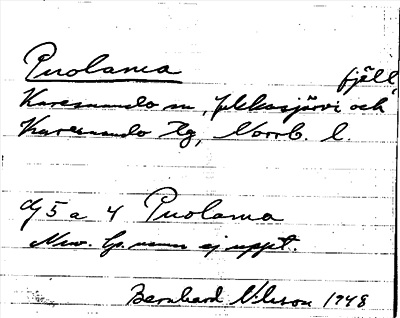 Puolama fjäll,
Karesuando sn, Jukkasjärvi och
Karesuando tg, Norrb. l.
dj 5 a 4 Puolama
Nuv. namn ej uppt.
Bernhard Nilsson 1948